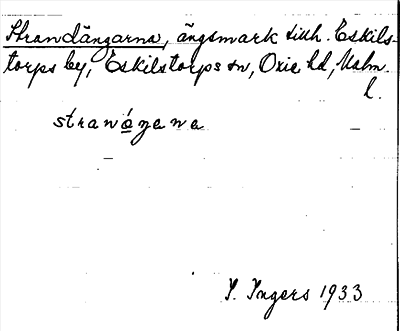 Strandängarna, ängsmark tillh. Eskils-
torps by, Eskilstorps sn, Oxie hd, Malm.
l.
stranózana
I. Ingers 1933